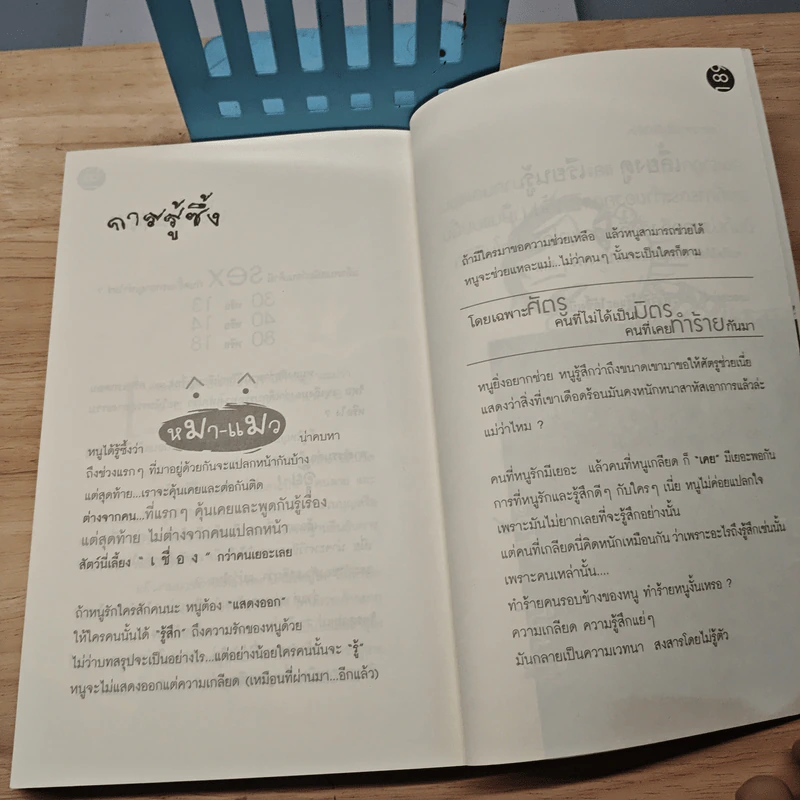 การรู้ซึ้ง
หนูได้รู้ซึ้งว่า หมา-แมว น่าคบหา
ถึงช่วงแรกๆ ที่มาอยู่ด้วยกันจะแปลกหน้ากันบ้าง
แต่สุดท้าย...เราจะคุ้นเคยและต่อกันติด
ต่างจากคน...ที่แรกๆ คุ้นเคยและพูดกันรู้เรื่อง
แต่สุดท้าย ไม่ต่างจากคนแปลกหน้า
สัตว์นี่เลี้ยง "เชื่อง" กว่าคนเยอะเลย
ถ้าหนูรักใครสักคนนะ หนูต้อง "แสดงออก"
ให้ใครคนนั้นได้ "รู้สึก" ถึงความรักของหนูด้วย
ไม่ว่าบทสรุปจะเป็นอย่างไร...แต่อย่างน้อยใครคนนั้นจะ "รู้"
หนูจะไม่แสดงออกแต่ความเกลียด (เหมือนที่ผ่านมา...อีกแล้ว)
ถ้ามีใครมาขอความช่วยเหลือ แล้วหนูสามารถช่วยได้
หนูจะช่วยแหละแม่...ไม่ว่าคนๆ นั้นจะเป็นใครก็ตาม
โดยเฉพาะศัตรู
คนที่ไม่ได้เป็นมิตร
คนที่เคยทำร้ายกันมา
หนูยิ่งอยากช่วย หนูรู้สึกว่าถึงขนาดเขามาขอให้ศัตรูช่วยเนี่ย
แสดงว่าสิ่งที่เขาเดือดร้อนมันคงหนักหนาสาหัสเอาการแล้วล่ะ
แม่ว่าไหม ?
คนที่หนูรักมีเยอะ แล้วคนที่หนูเกลียด ก็ "เคย" มีเยอะพอกัน
การที่หนูรักและรู้สึกดีๆ กับใครๆ เนี่ย หนูไม่ค่อยแปลกใจ
เพราะมันไม่ยากเลยที่จะรู้สึกอย่างนั้น
แต่คนที่เกลียดนี่คิดหนักเหมือนกัน ว่าเพราะอะไรถึงรู้สึกเช่นนั้น
เพราะคนเหล่านั้น....
ทำร้ายคนรอบข้างของหนู ทำร้ายหนูงั้นเหรอ ?
ความเกลียด ความรู้สึกแย่ๆ
มันกลายเป็นความเวทนา สงสารโดยไม่รู้ตัว